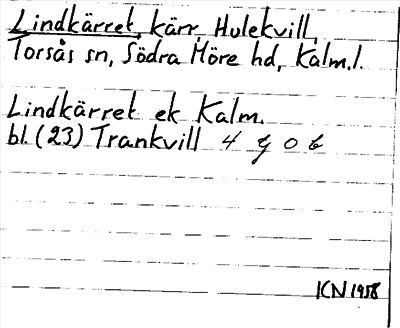 Lindkärret, kärr, Hulekvill,
Torsås sn, Södra Möre hd, Kalm.l.
Lindkärret ek Kalm.
bl. (23) Trankvill 4 g o b
KN 1958